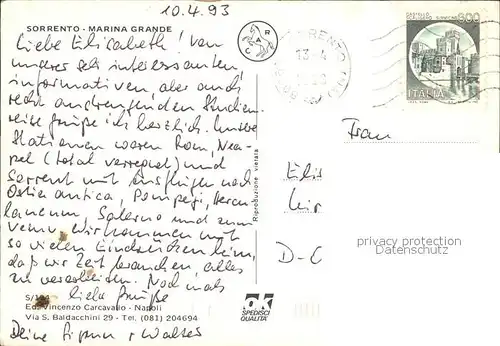 10.4.93
SORRENTO - MARINA GRANDE
Liebe Elisabeth! Von
unserer sehr interessanten
informativen, aber auch
recht anstrengenden Studien-
reise grüße ich herzlich. Unsere
Stationen waren Rom, Nea-
pel (total verregnet) und
Sorrent mit Ausflügen nach
Ostia antica, Pompeji, Hercu-
laneum, Salerno und zum
Vesuv. Wir kommen mit
so vielen Eindrücken heim,
daß wir Zeit brauchen, alles
zu verarbeiten. Nochmals
liebe Grüße
S/1
Ed. Vincenzo Carcavallo - Napoli
Via S. Baldacchini 29 - Tel. (081) 204694
Deine + Walter
Riproduzione vietata
OK
SPEDISCI
QUALITÀ
CASTELLO
SCALIGERO SIRMIONE
600
ITALIA
SORRENTO
13-4
Frau
Elis
D-
privacy protection
Datenschutz